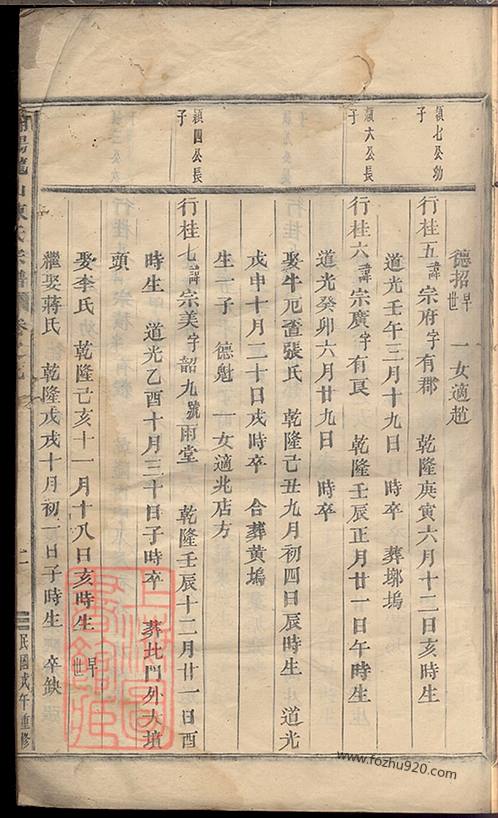 德招早世 一女適趙
穎七公幼子
行桂五諱宗府字有郡 乾隆庚寅六月十二日亥時生
道光壬午三月十九日 時卒 葬塜塢
穎六公長子
行桂六諱宗廣字有良 乾隆壬辰正月廿一日午時生
道光癸卯六月廿九日 時卒
娶牛厄畬張氏 乾隆己丑九月初四日辰時生 道光
戊申十月二十日戌時卒 合葬黄塢
生一子 德魁 一女適兆店方
穎四公長子
行桂七諱宗美字韶九號雨堂 乾隆壬辰十二月廿一日酉
時生 道光乙酉十月三十日子時卒 葬北門外大墳
頭
娶李氏 乾隆己亥十一月十八日亥時生 早世
繼娶蔣氏 乾隆戊戌十月初一日子時生 卒缺
陳氏宗譜
民國戊午重修
www.fozhu920.com